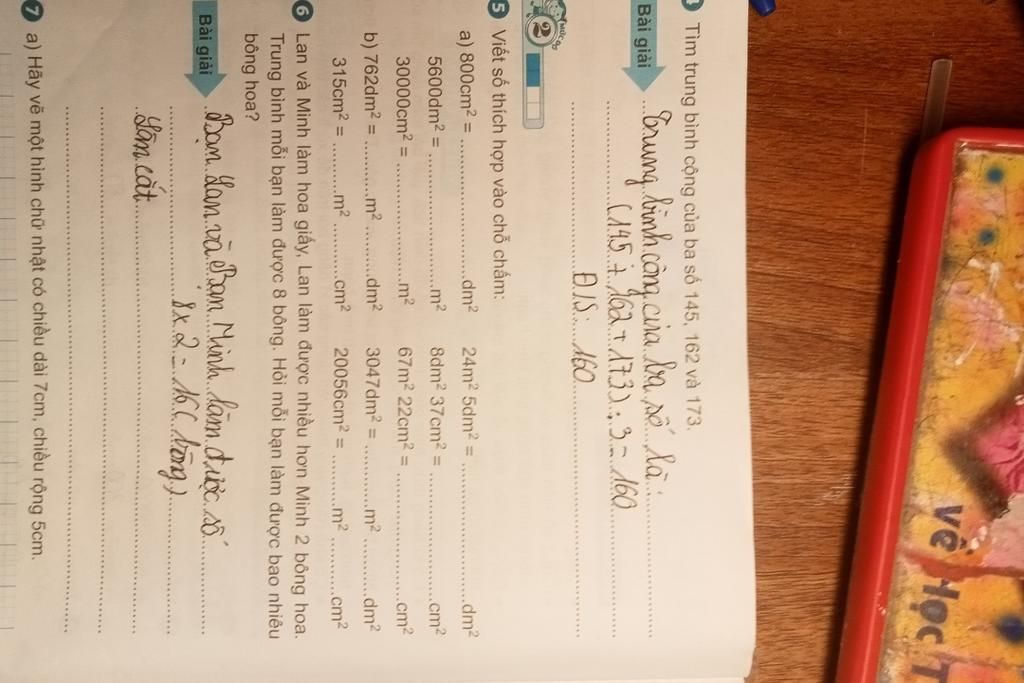 Tìm trung bình cộng của ba số 145, 162 và 173.
Bài giải
Trung bình côn của ba số là:
(145 + 162 + 173) : 3 = 160
Đ/S: 160
Mức độ
2
5 Viết số thích hợp vào chỗ chấm:
a) 800cm² = ..................dm² 24m² 5dm² = ..................dm²
5600dm² = ..................m² 8dm² 37cm² = ..................cm²
30000cm² = ..................m² 67m² 22cm² = ..................cm²
b) 762dm² = .........m² .........dm² 3047dm² = .........m² .........dm²
315cm² = .........m² .........cm² 20056cm² = .........m² .........cm²
6 Lan và Minh làm hoa giấy, Lan làm được nhiều hơn Minh 2 bông hoa. Trung bình mỗi bạn làm được 8 bông. Hỏi mỗi bạn làm được bao nhiêu bông hoa?
Bài giải
Bạn Lan và Minh làm được số
8 x 2 = 16 ( bông)
7 a) Hãy vẽ một hình chữ nhật có chiều dài 7cm, chiều rộng 5cm.
Vẽ Học T